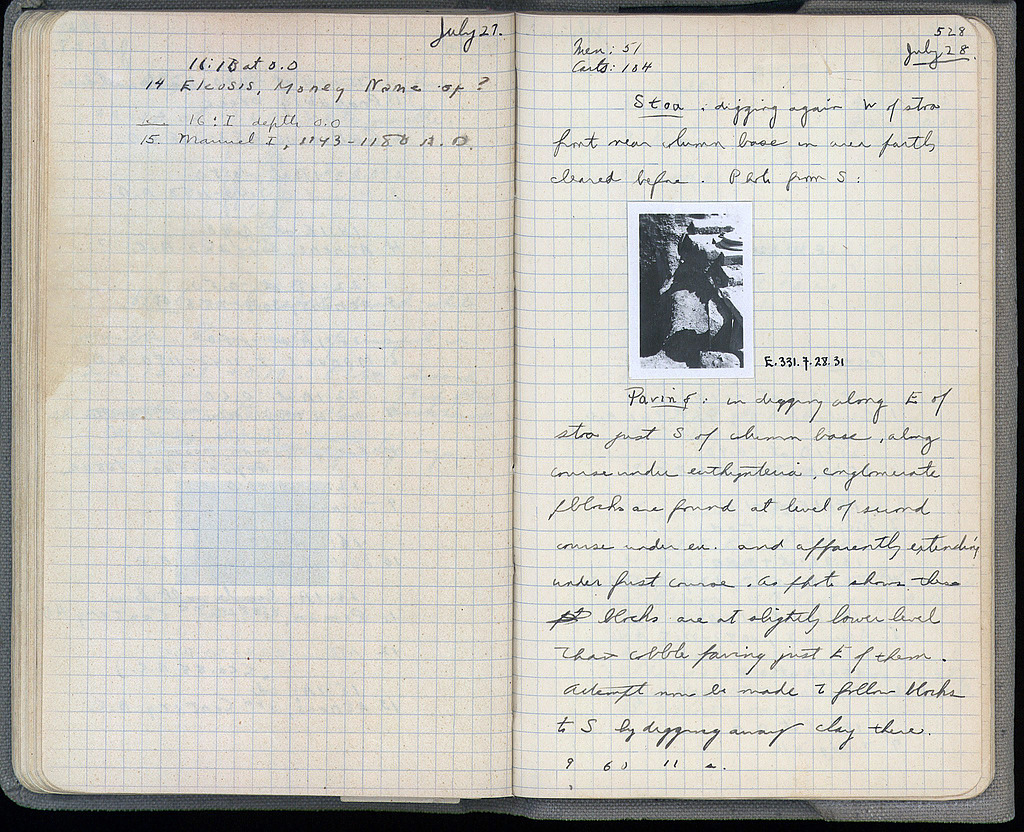 July 27.
16: I at 0.0
14 Elcosis, Money None of ?
16: I depth 0.0
15. Manuel I, 1143-1180 A.D.
528
July 28.
Men: 51
Carts: 104
Stoa: digging again W of stoa
front near column base in area partly
cleared before. Photo from S:
E.331.7.28.31
Paving: in digging along E of
stoa just S of column base, along
course under euthynteria, conglomerate
blocks are found at level of second
course under eu. and apparently extending
under first course. As photo shows these
blocks are at slightly lower level
than cobble paving just E of them.
Attempt now be made to follow blocks
to S by digging away clay there.
9 60 11